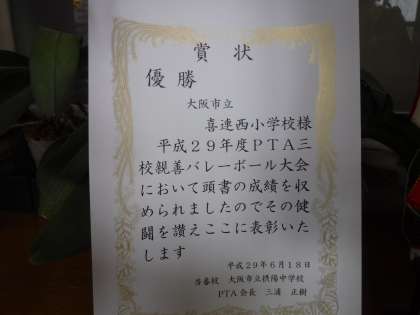 賞状
優勝
大阪市立
喜連西小学校様
平成29年度PTA三
校親善バレーボール大会
において頭書の成績を収
められましたのでその健
闘を讃えここに表彰いた
します
平成29年6月18日
当番校 大阪市立摂陽中学校
PTA会長 三浦 正樹